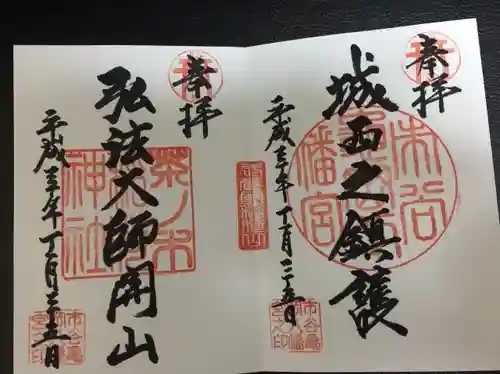 奉拝
城西之鎮護
市谷亀岡八幡宮
平成三十年十一月二十五日
奉拝
弘法大師開山
茶ノ木稲荷神社
平成三十年十一月二十五日